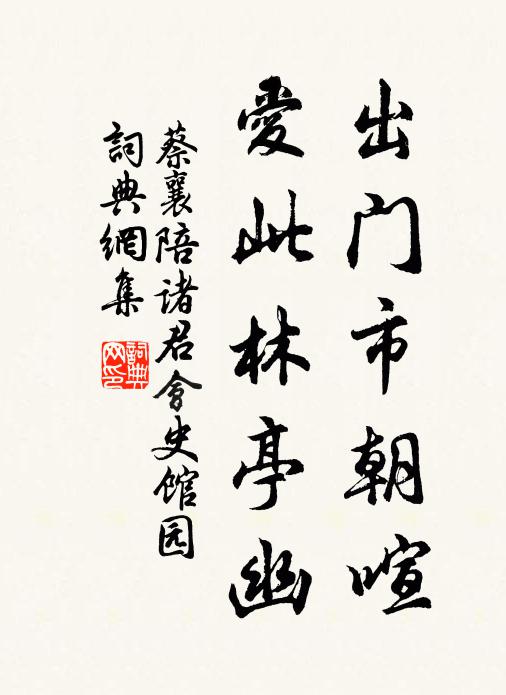 出门市朝喧
愛此林亭幽
蔡襄陪諸君會史館园
詞典網集
詞典网印